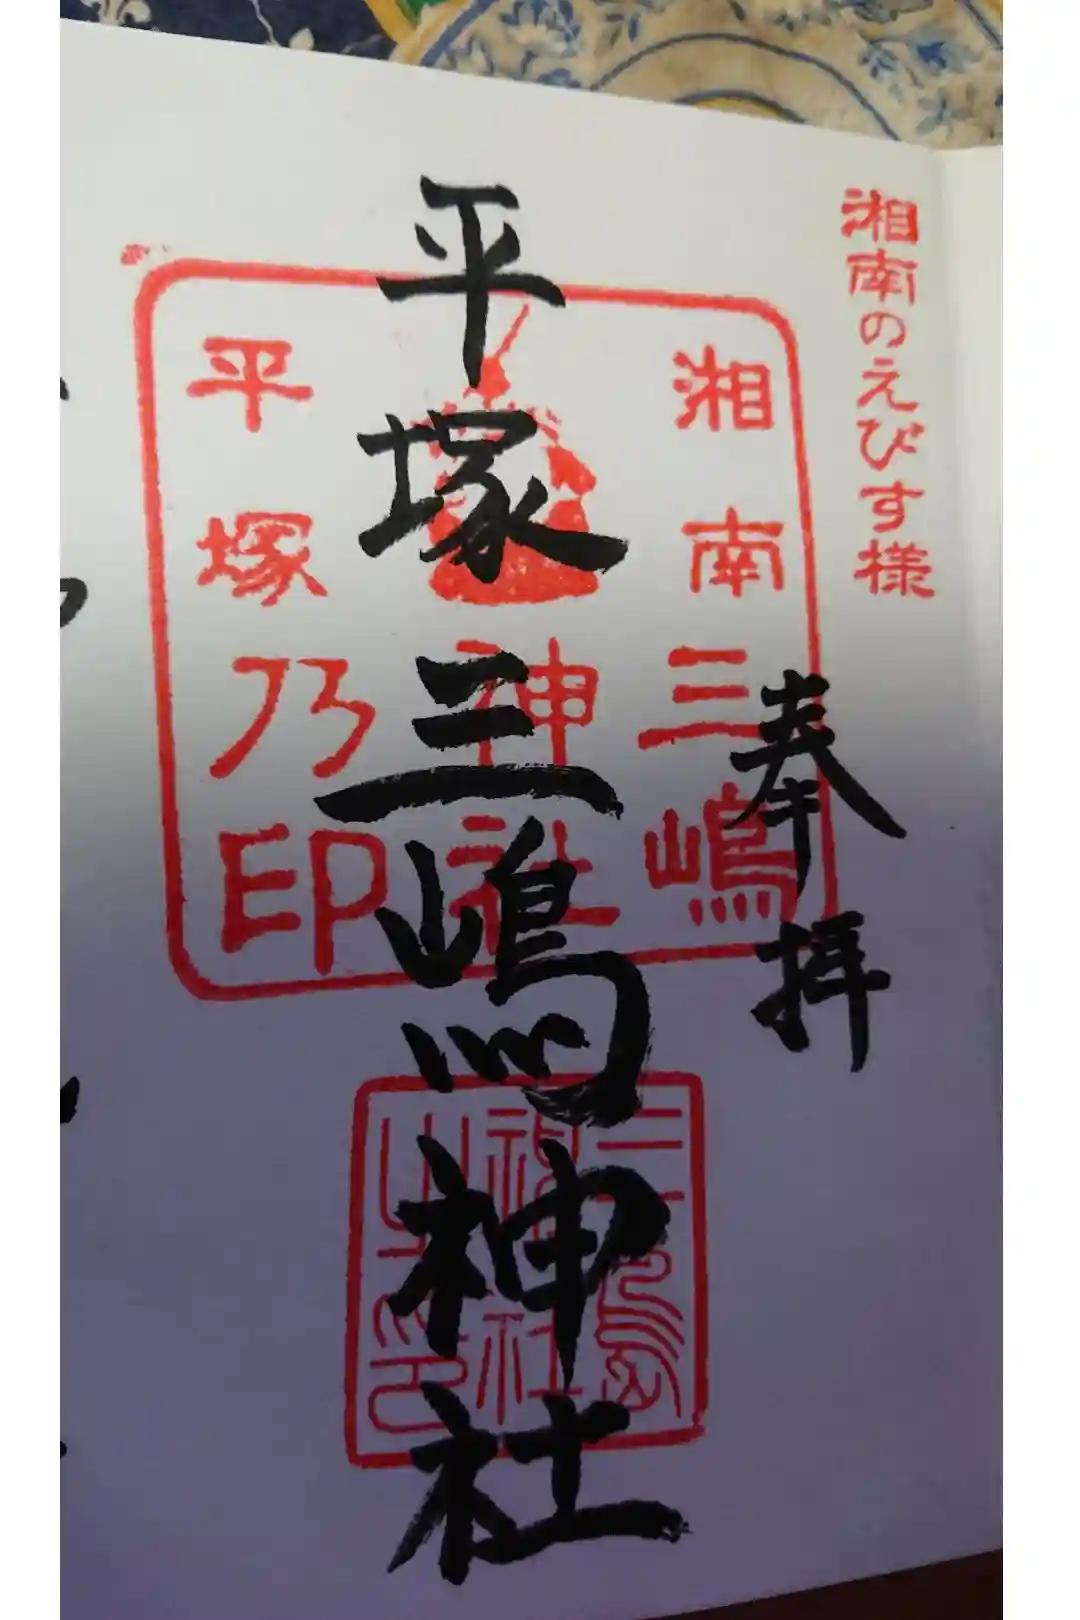 湘南のえびす様
奉拝
湘南三嶋
神社
平塚乃印
平塚三嶋神社
三嶋
神社
之印